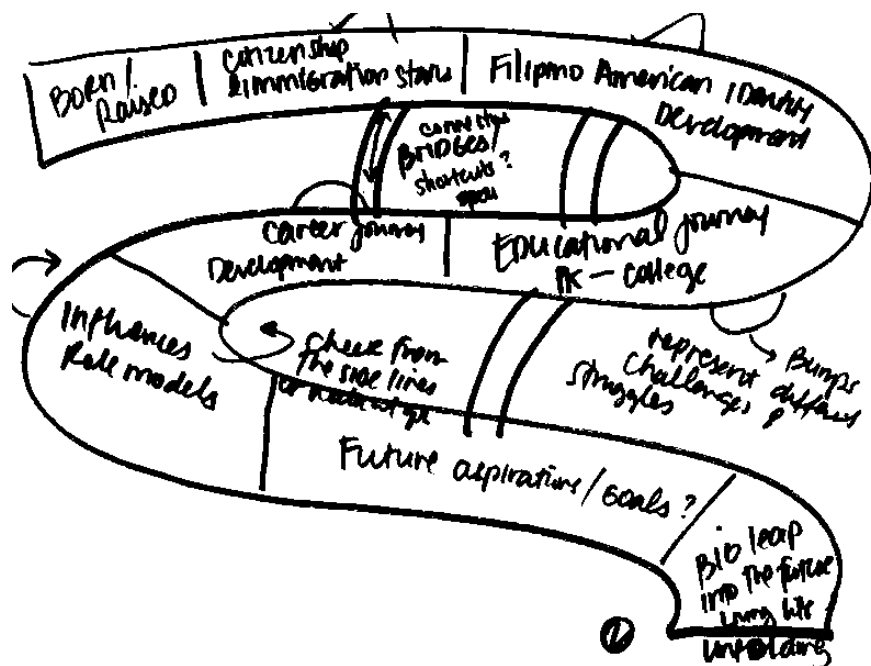 Born /
Raised
Citizenship
& immigration status
Filipino American Identity
Development
connecting
BRIDGES /
shortcuts ?
Career journey
Development
Educational journey
PK — college
Influences
Role models
cheer from
the side lines
Bumps
represent different
challenges &
struggles
Future aspirations / Goals ?
Big leap
into the future
living life
unfolding